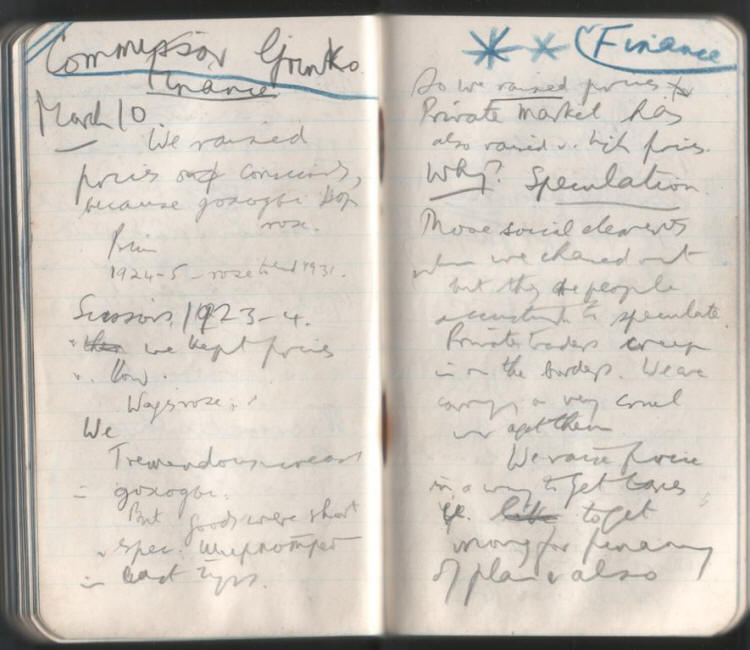 Commissar Grinko
Finance
March 10.
We raised
prices and consciously,
because
rose.
1924-5 - rose 1931.
Scissors, 1923-4.
we kept prices
low.
Wages rose,
We
Tremendous increase
in
But goods were short
spec.
in last 2 yrs.
(Finance
So we raised prices
Private market has
also raised v. high prices.
Why? Speculation
Those social elements
when we cleaned out
but they are people
accustomed to speculate
Private traders creep
in on the bordeps. We are
carrying on very cruel
war agst them
We raise price
in a way to get taxes
ie. to get
money for financing
of plan & also